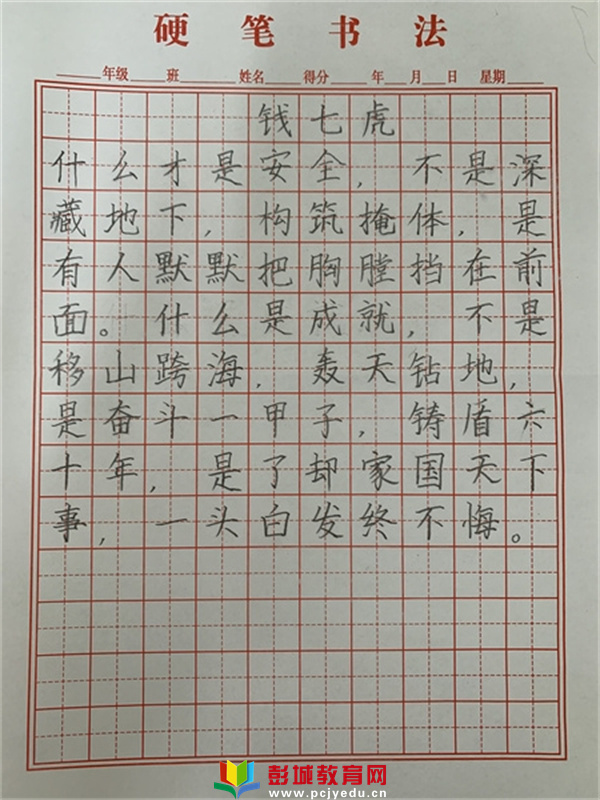 硬笔书法
____年级____班______姓名____得分____年___月___日 星期____
钱七虎
什么才是安全，不是深
藏地下，构筑掩体，是
有人默默把胸膛挡在前
面。什么是成就，不是
移山跨海，轰天钻地，
是奋斗一甲子，铸盾六
十年，是了却家国天下
事，一头白发终不悔。
彭城教育网
www.pcjyedu.cn